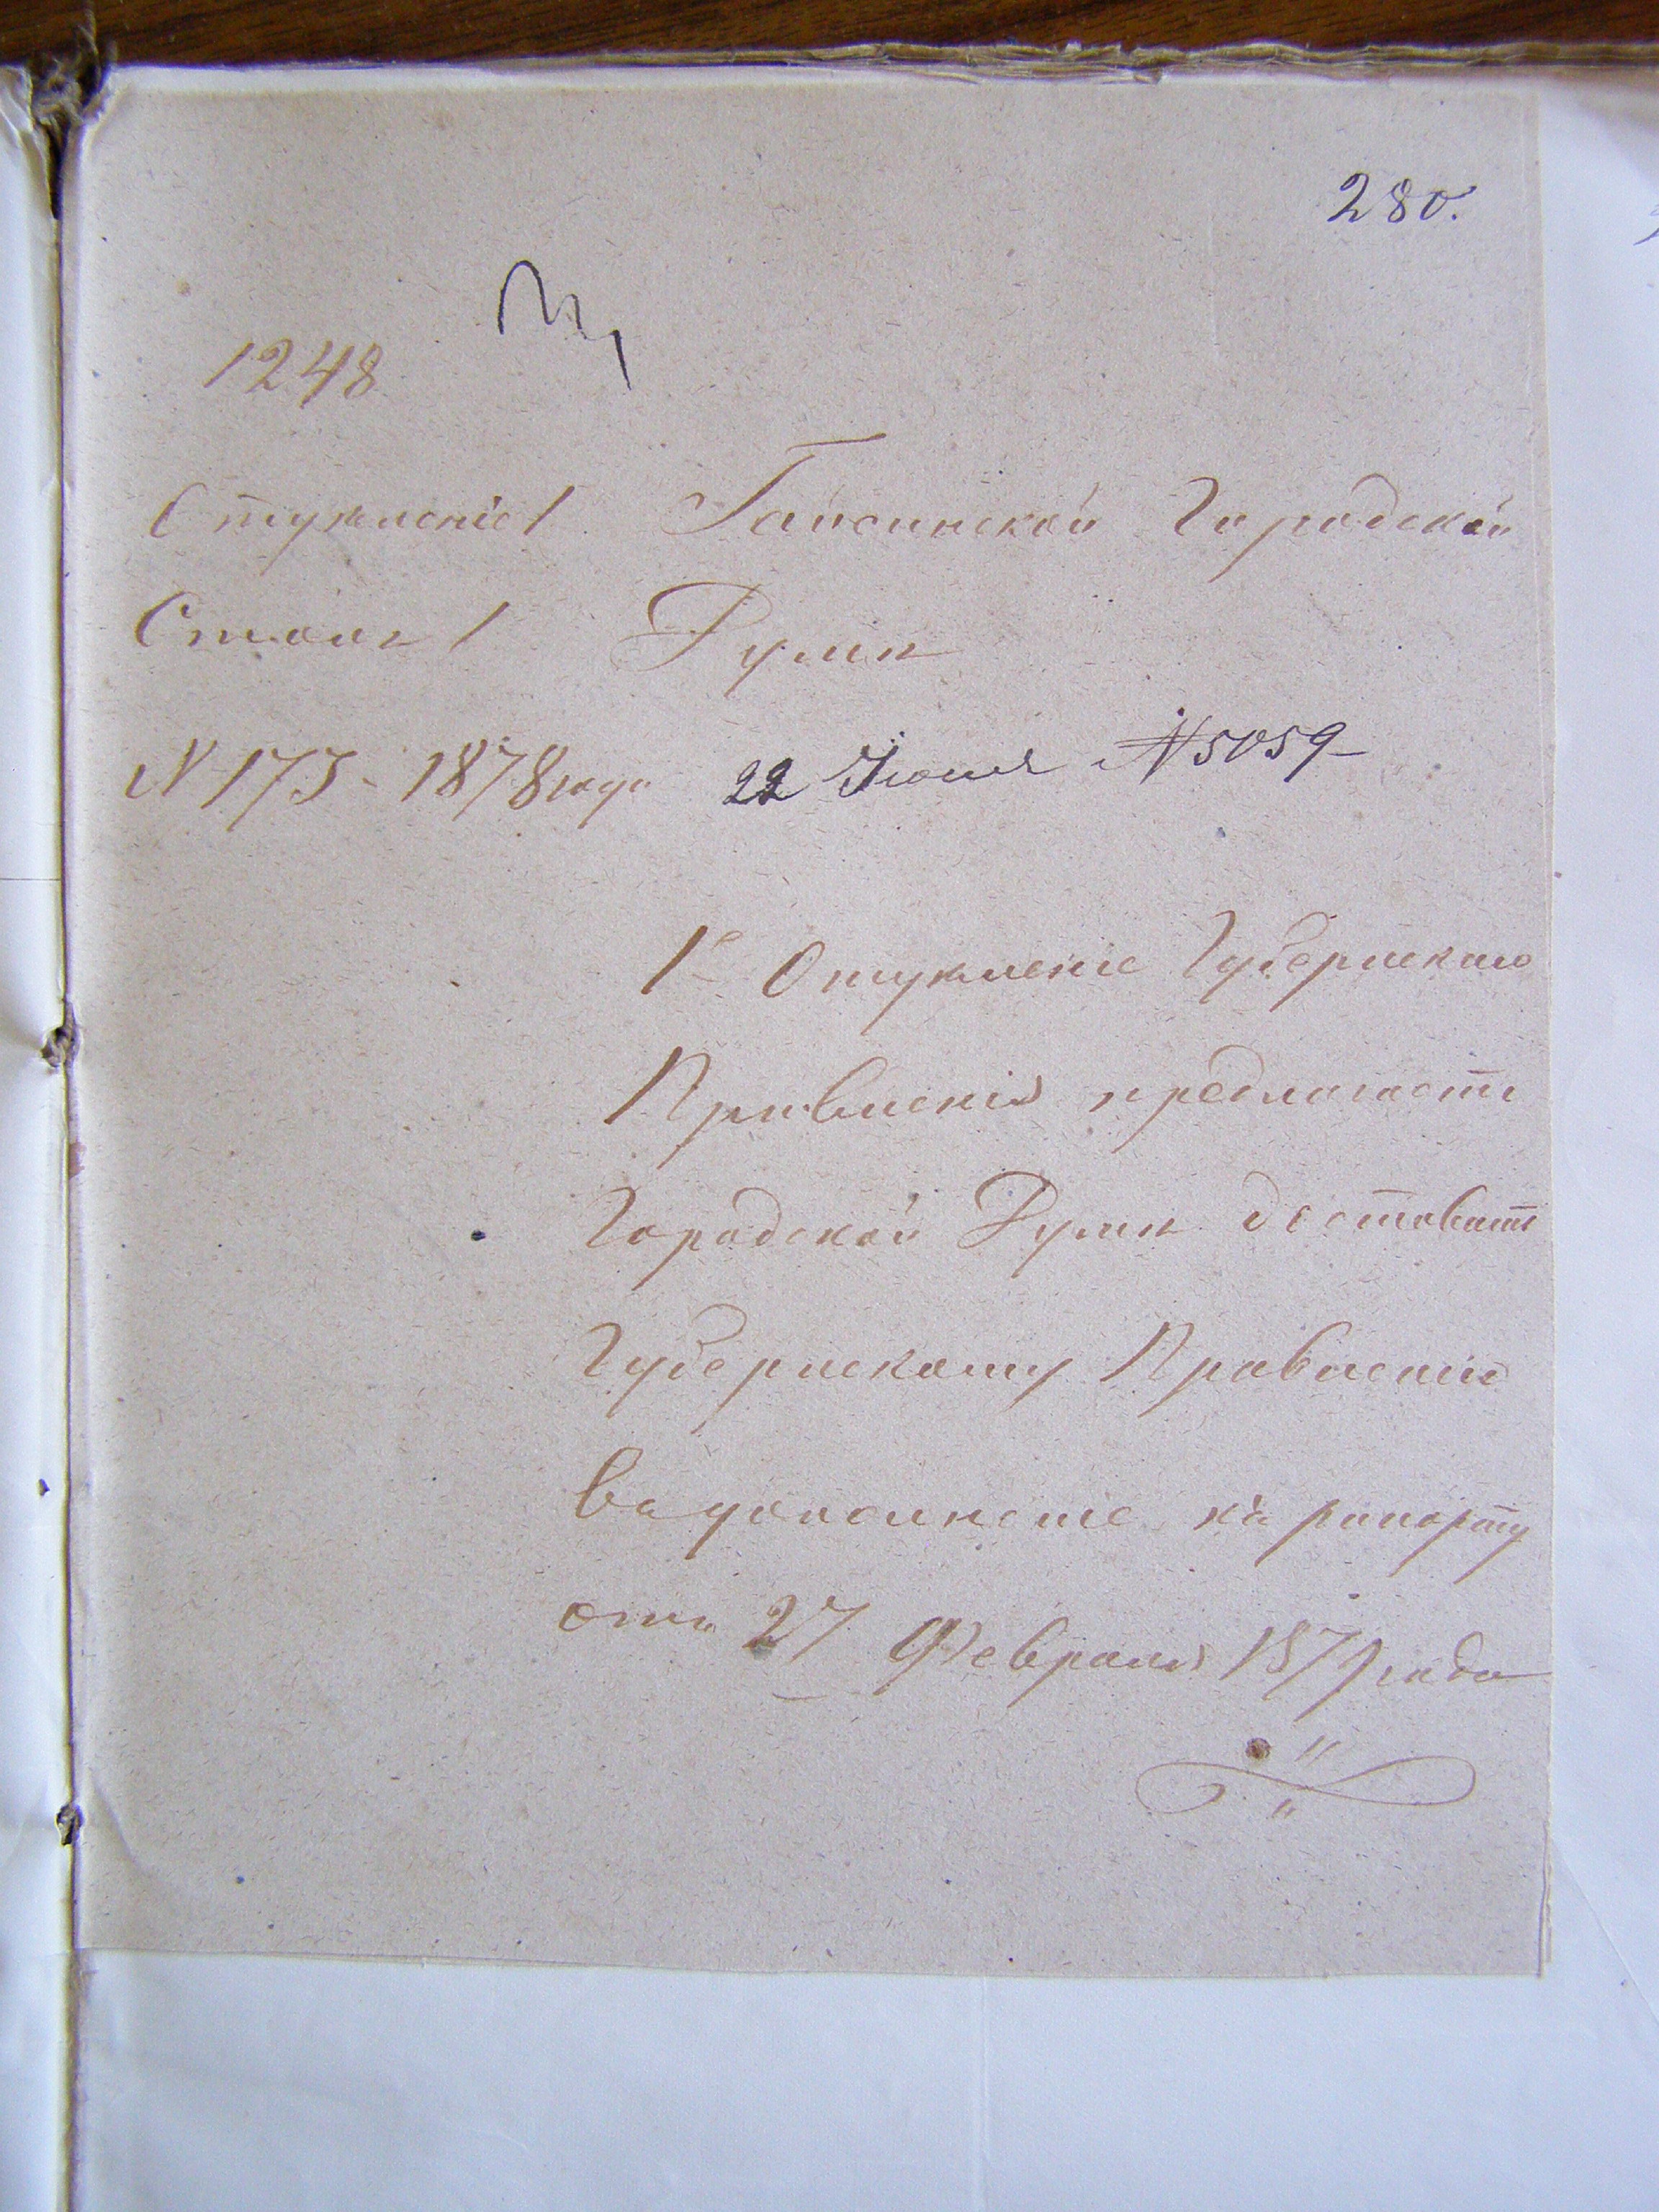 280.
1248
Отделение 1 Гайсинской Городской
Столъ 1 Думѣ
N 175 - 1878 года 22 Июня №5059
1е Отделеніе Губернскаго
Правленія предлагаетъ
Городской Думѣ доставить
Губернскому Правленію
въ дополненіе къ рапорту
отъ 27 Февраля 1879 года